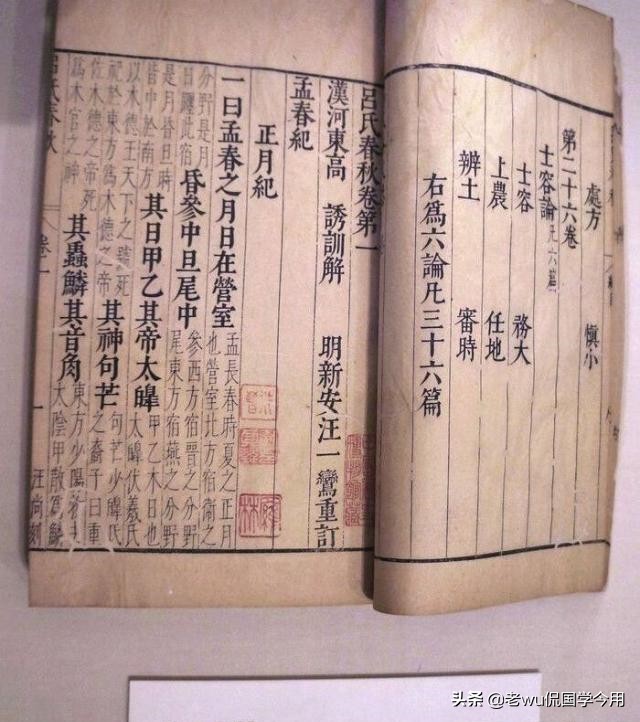 處方 慎小
第二十六卷
士容論凡六篇
士容 務大
上農 任地
辨土 審時
右爲六論凡三十六篇
呂氏春秋卷第一
漢河東高 誘訓解 明新安汪一鸞重訂
孟春紀
正月紀
一曰孟春之月日在營室孟長春時夏之正月也營室北方宿衛之
分野是月日躔此宿昏參中旦尾中參西方宿晉之分野尾東方宿燕之分野
是月昏旦時皆中於南方其日甲乙其帝太皞甲乙木日也太皞伏羲氏
以木德王天下之號死祀於東方爲木德之帝其神句芒句芒少皞氏之裔子曰重
佐木德之帝死爲木官之神其蟲鱗其音角東方少陽
太陰甲散爲鱗
呂氏春秋 卷一 一 汪尚刻
头条 @老wu侃国学今用